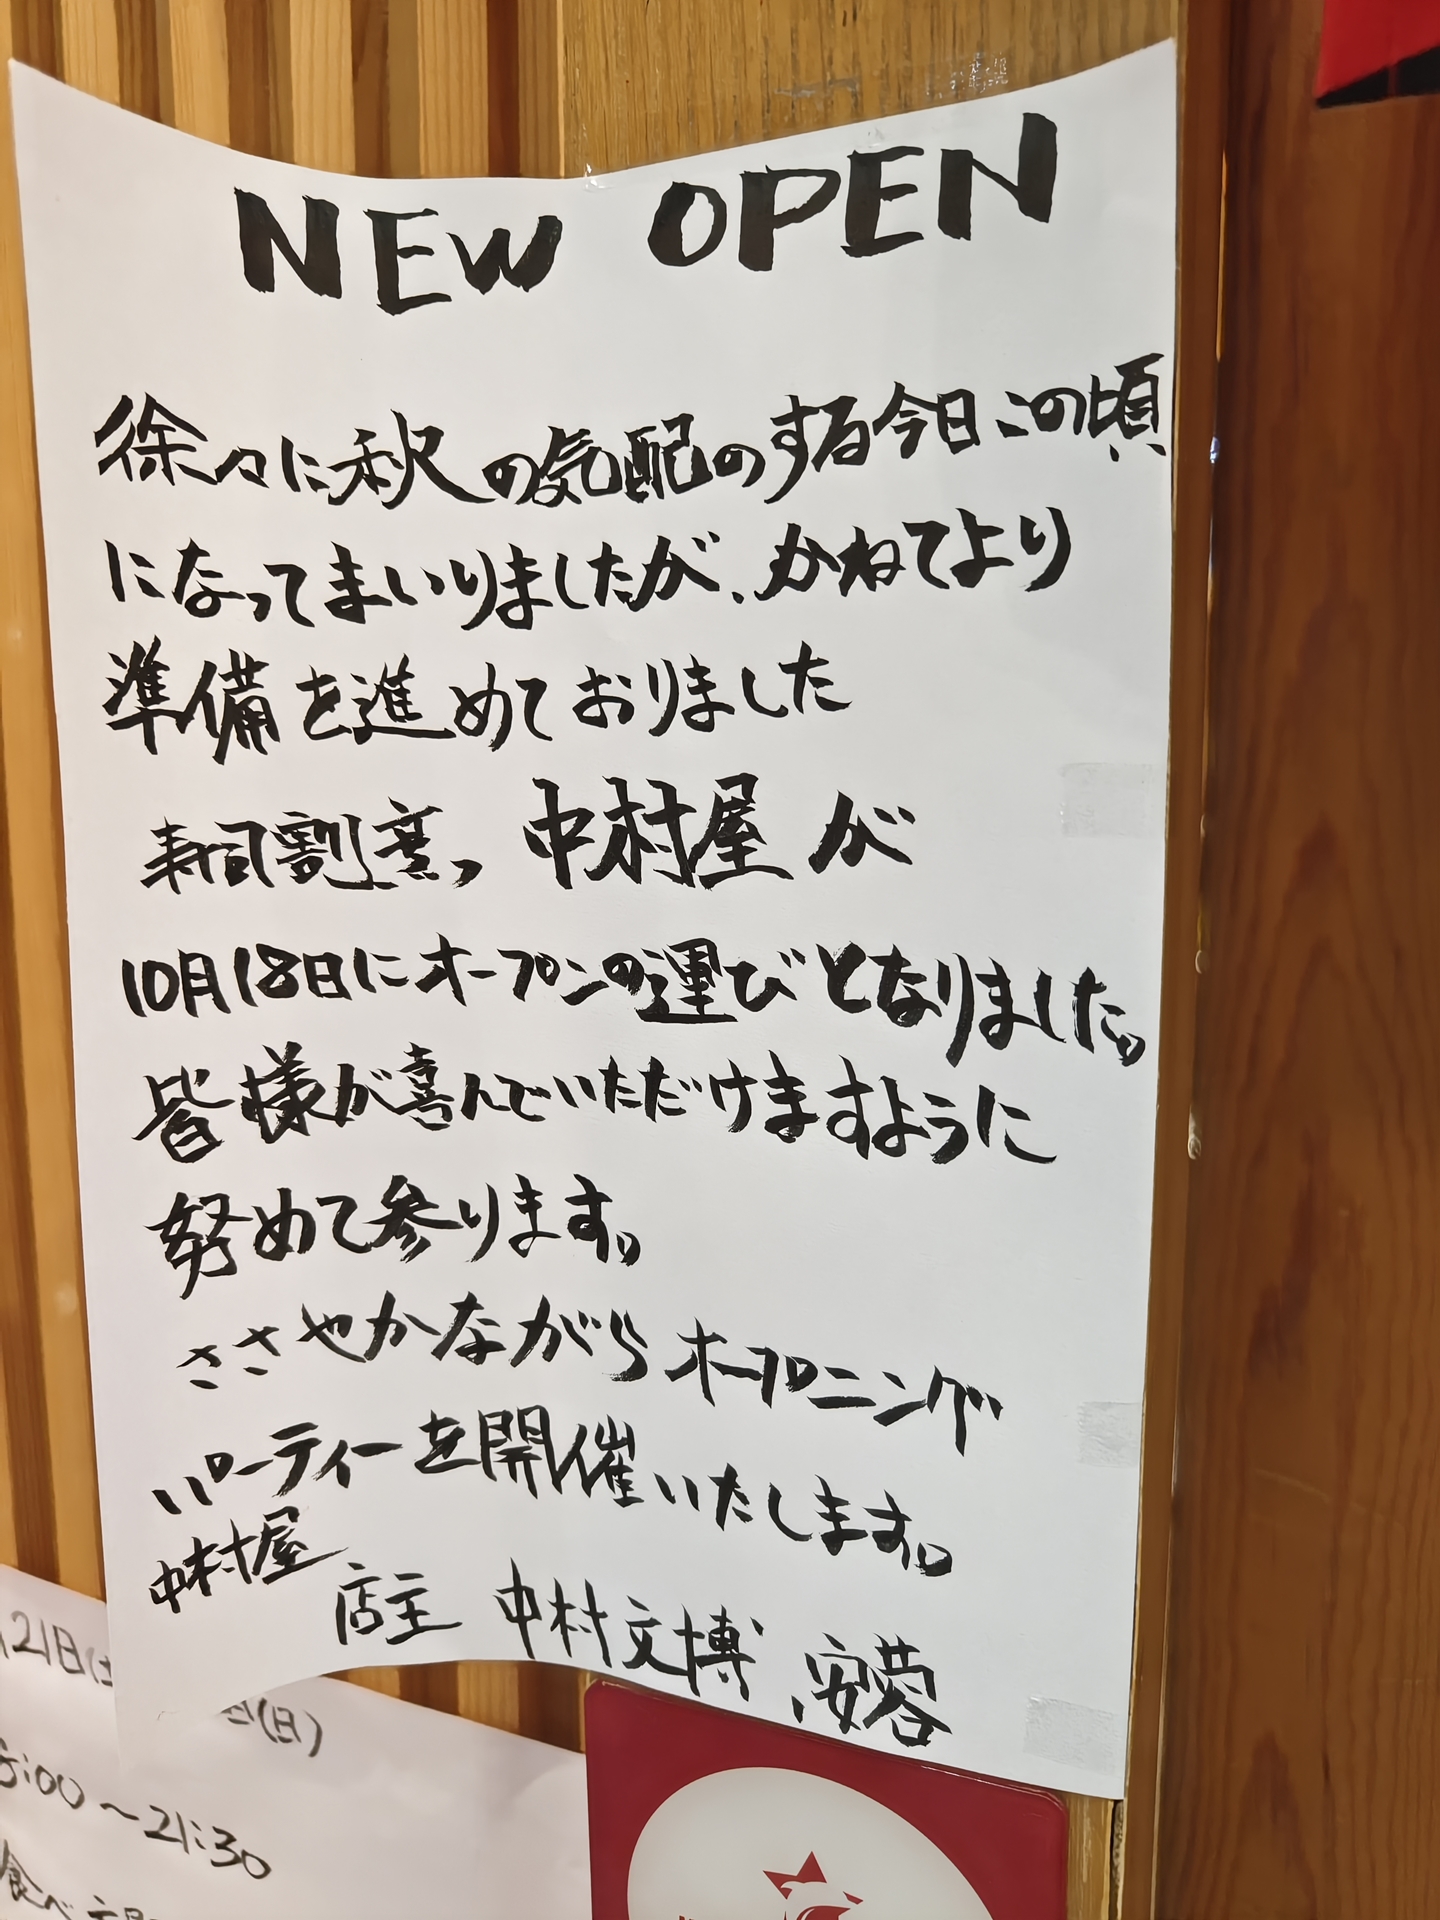 NEW OPEN
徐々に秋の気配のする今日この頃
になってまいりましたが、かねてより
準備を進めておりました
寿司割烹、中村屋が
10月18日にオープンの運びとなりました。
皆様が喜んでいただけますように
努めて参ります。
ささやかながらオープニング
パーティーを開催いたします。
中村屋
店主 中村文博、安蓉
21日(土
(日)
:00〜21:30
食べ